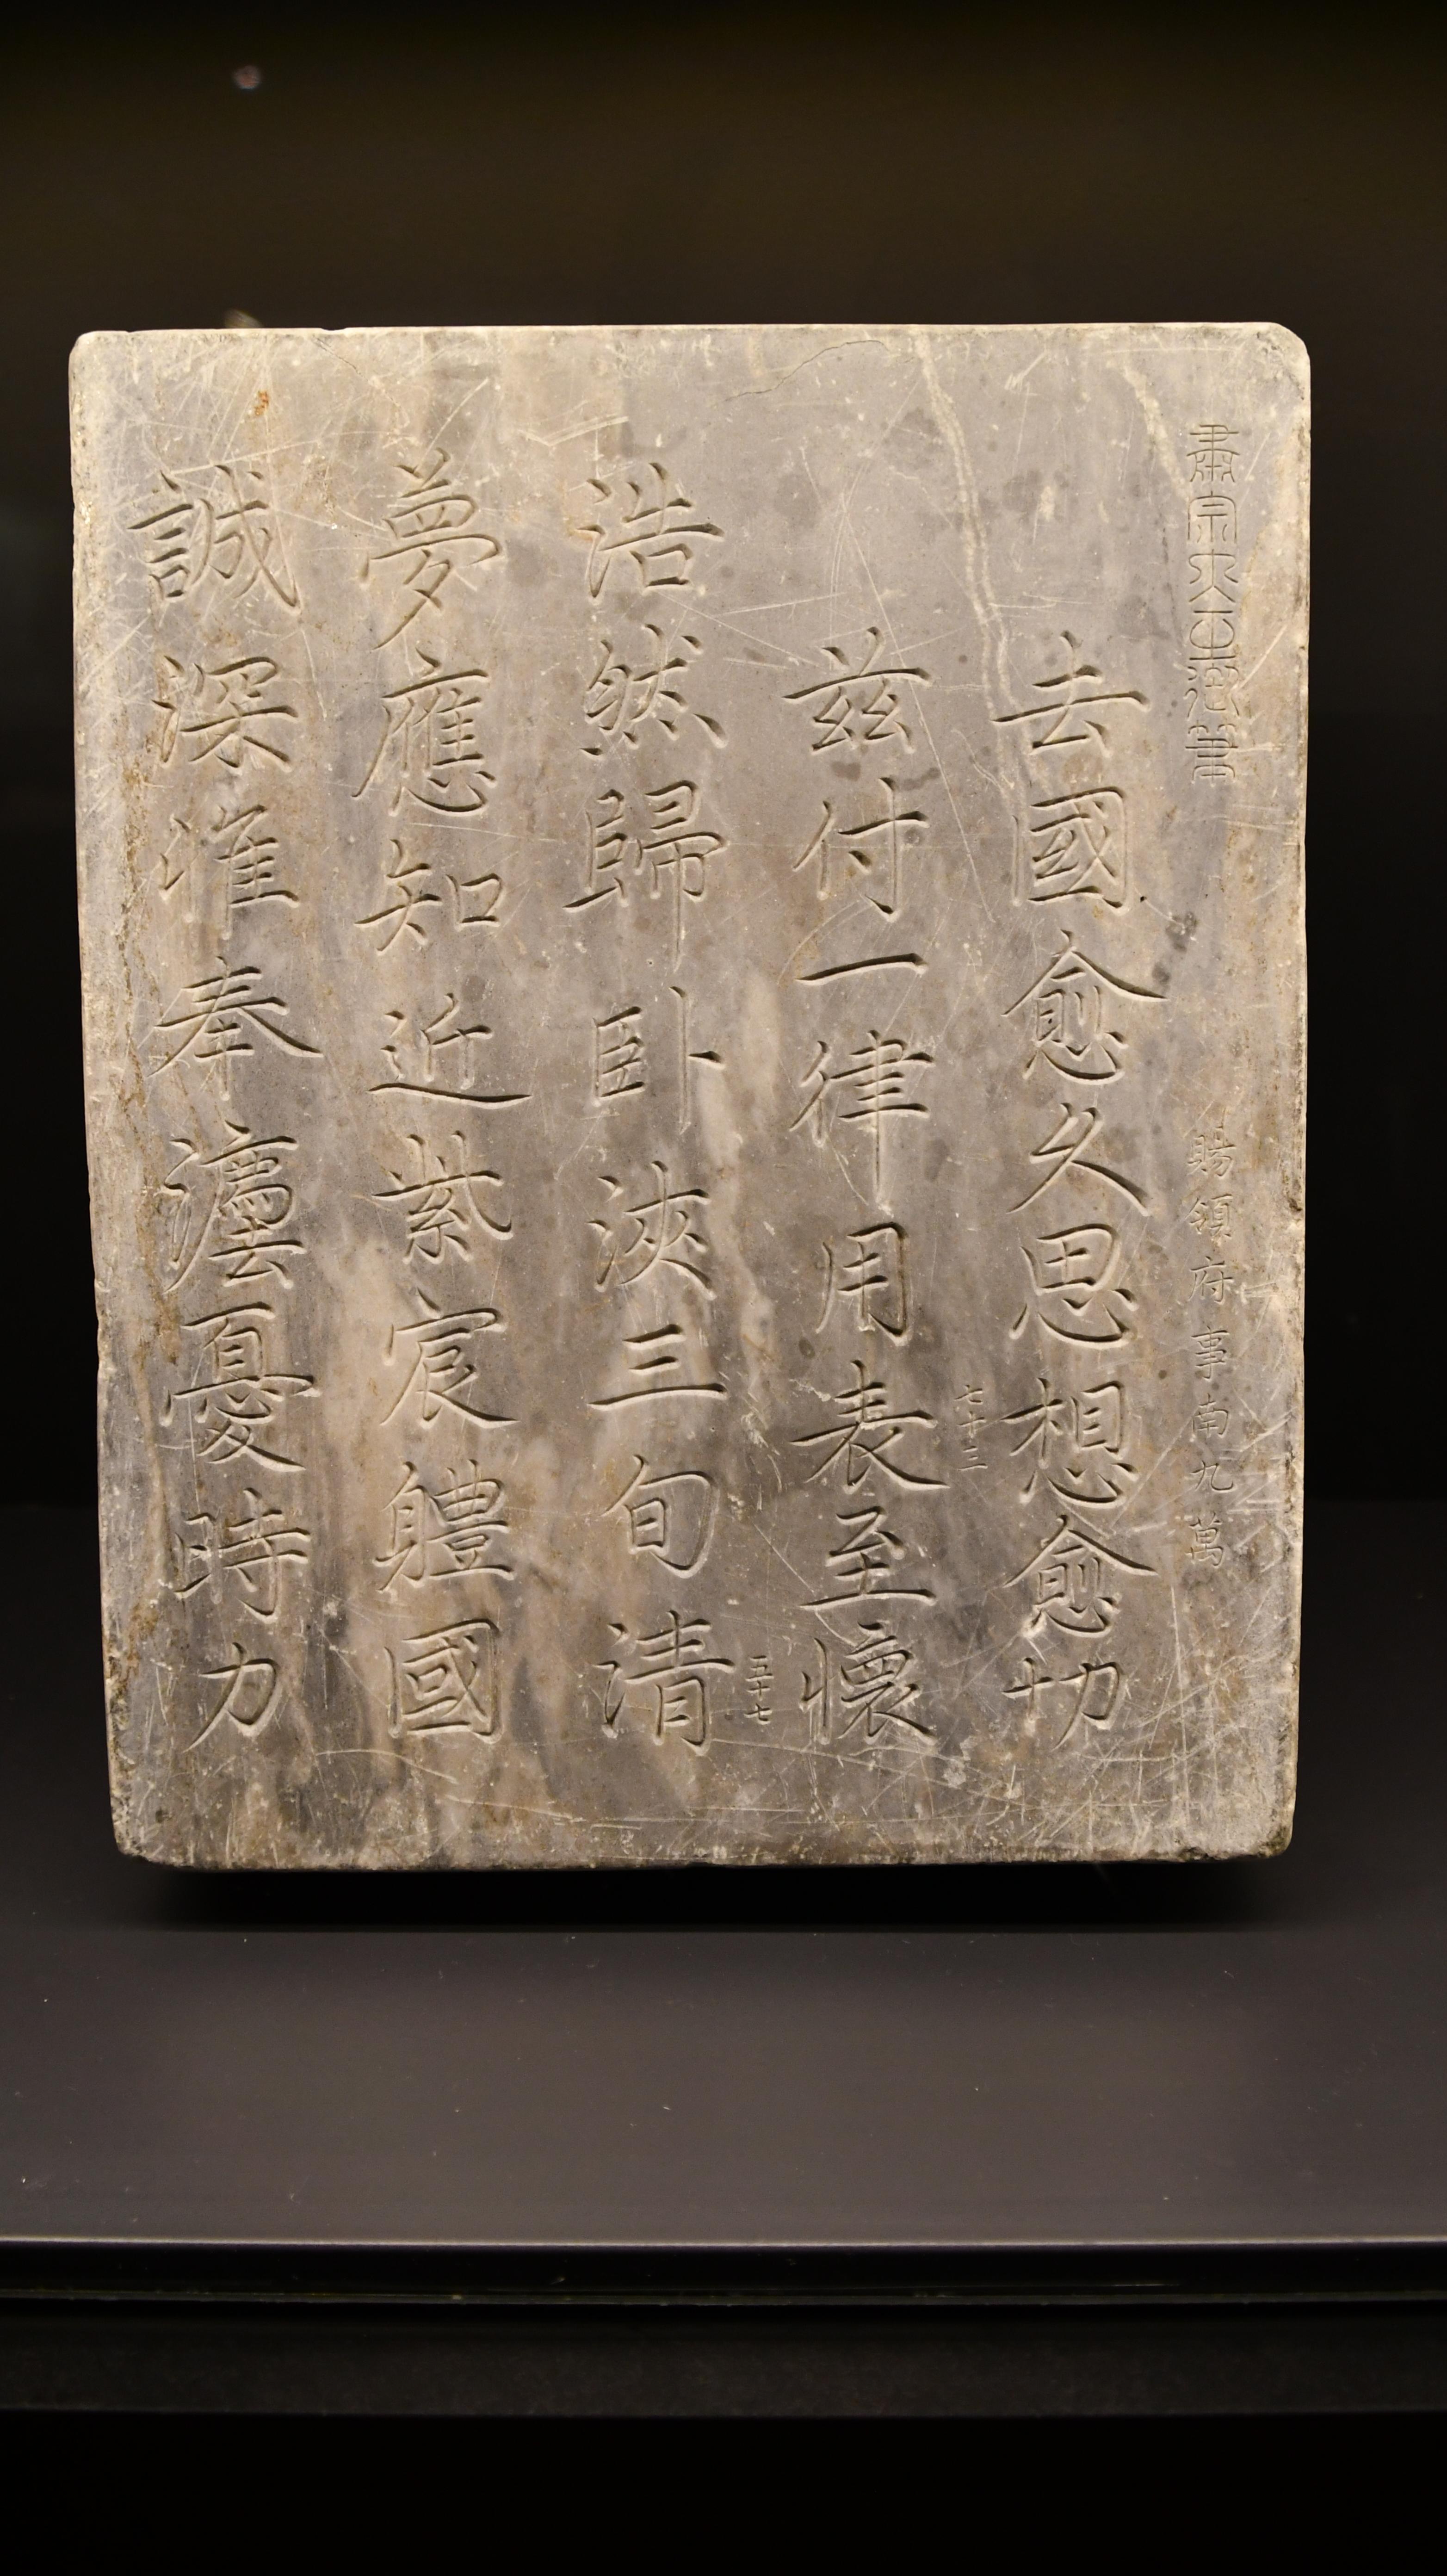 肅宗大王御筆
賜領府事南九萬
去國愈久思想愈切
七十三
兹付一律用表至懷
五十七
浩然歸臥浹三旬清
夢應知近紫宸軆國
誠深准奉灋憂時力